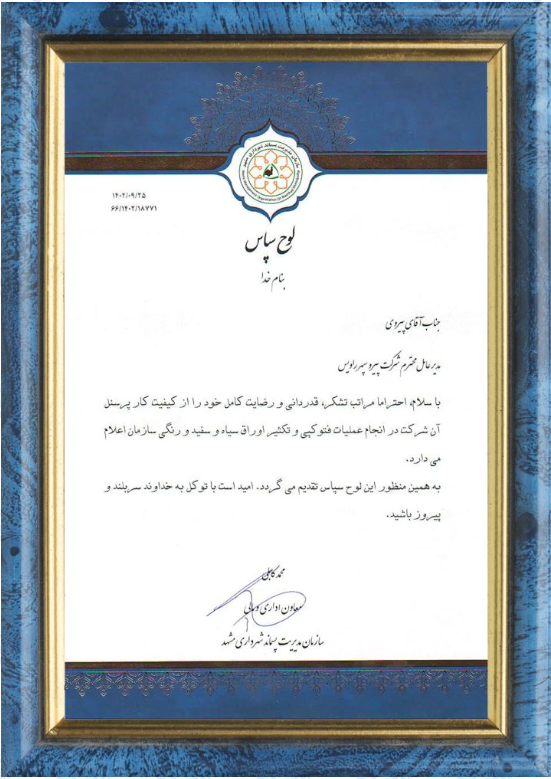 ۱۴۰۲/۰۹/۲۵
۶۶/۱۴۰۲/۱۸۷۷۱
لوح سپاس
بنام خدا
جناب آقای پیروی
مدیر عامل محترم شرکت پیرو سپهر راویس
با سلام، احتراما مراتب تشکر، قدردانی و رضایت کامل خود را از کیفیت کار پرسنل
آن شرکت در انجام عملیات فتوکپی و تکثیر اوراق سیاه و سفید و رنگی سازمان اعلام
می دارد.
به همین منظور این لوح سپاس تقدیم می گردد. امید است با توکل به خداوند سربلند و
پیروز باشید.
محمد کابلی
معاون اداری و مالی
سازمان مدیریت پسماند شهرداری مشهد